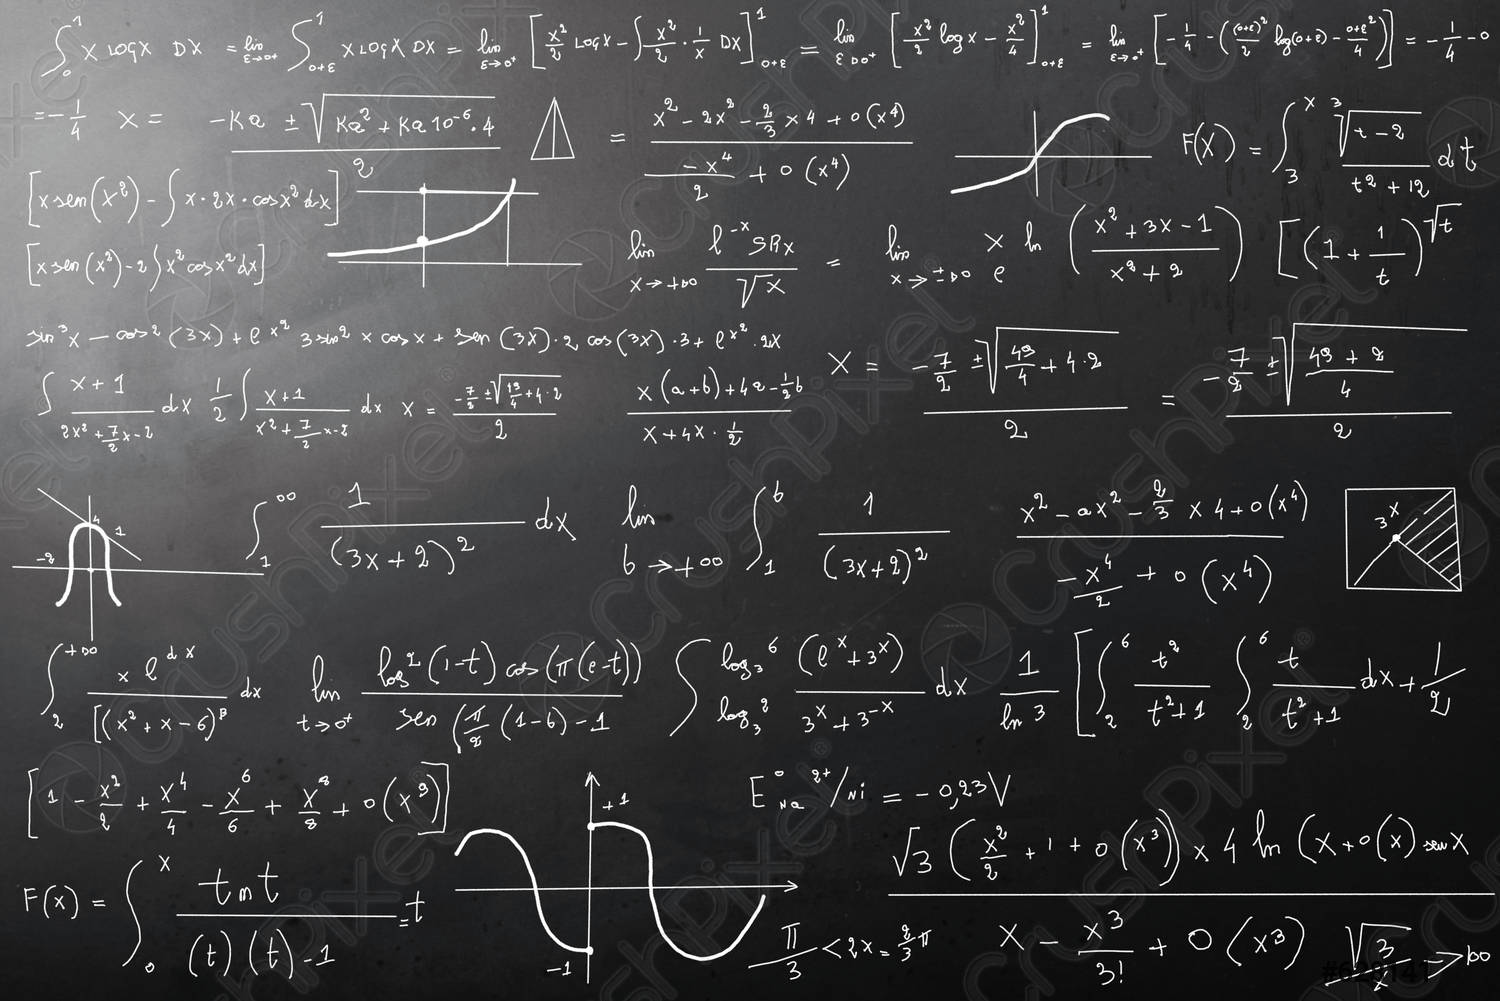 ∫₀¹ x log x dx = lim ε→0+ ∫₀₊ε¹ x log x dx = lim ε→0+ [x²/2 log x − ∫ x²/2 · 1/x dx]₀₊ε¹ = lim ε→0+ [x²/2 log x − x²/4]₀₊ε¹ = lim ε→0+ [−1/4 − ((0+ε)²/2 log(0+ε) − (0+ε)/4)] = −1/4 − 0
= −1/4
x = (−Ka ± √(Ka² + Ka 10⁻⁶ · 4))/2
= (x² − 2x² − 2/3 × 4 + o(x⁴))/(−x⁴/2 + o(x⁴))
F(x) = ∫₃ˣ ∛(t−2)/(t² + 12) dt
[x sen(x²) − ∫ x · 2x · cos x² dx]
[x sen(x²) − 2 ∫ x² cos x² dx]
lim x→+∞ e⁻ˣ /√x =
lim x→±∞ x e ln ((x² + 3x − 1)/(x² + 2))
[(1 + 1/t)^√t
sin³x − cos²(3x) + e^x² 3 sin² x cos x + sen (3x) · 2 cos(3x) · 3 + e^x² · 2x
∫ (x+1)/(2x² + 7/2 x − 2) dx 1/2 ∫ (x+1)/(x² + 7/2 x − 2) dx x = (−7/2 ± √(49/4 + 4 · 2))/2
(x(a+b) + 4a − 1/2 b)/(x + 4x · 1/2)
x = (−7/2 ± √(49/4 + 4 · 2))/2 = (−7/2 ± √((49 + 2)/4))/2
4 1
−2
∫₁^∞ 1/(3x+2)² dx
lim b→+∞ ∫₁ᵇ 1/(3x+2)²
(x² − ax² − 2/3 × 4 + o(x⁴))/(−x⁴/2 + o(x⁴))
3ˣ
∫₂^+∞ x e^dx/[(x² + x − 6)^β dx
lim t→0+ log²(1−t) cos(π(e−t))/sen(π/2 (1−6) − 1
∫ log₃ 6 log₃ 2 (eˣ + 3ˣ)/(3ˣ + 3⁻ˣ) dx
1/ln 3 [∫₂⁶ t²/(t²+1) ∫₂⁶ t/(t²+1) dx + 1/2
[1 − x²/2 + x⁴/4 − x⁶/6 + x⁸/8 + o(x⁹)]
+1
−1
E° Na 2+/Ni = −0,23V
√3 (x²/2 + 1 + o(x³)) × 4 ln (x + o(x) sen x
x − x³/3! + o(x³)
F(x) = ∫₀ˣ tnt/(t)(t)−1 = t
π/3 < 2x = 2/3 π
√3/x → ∞